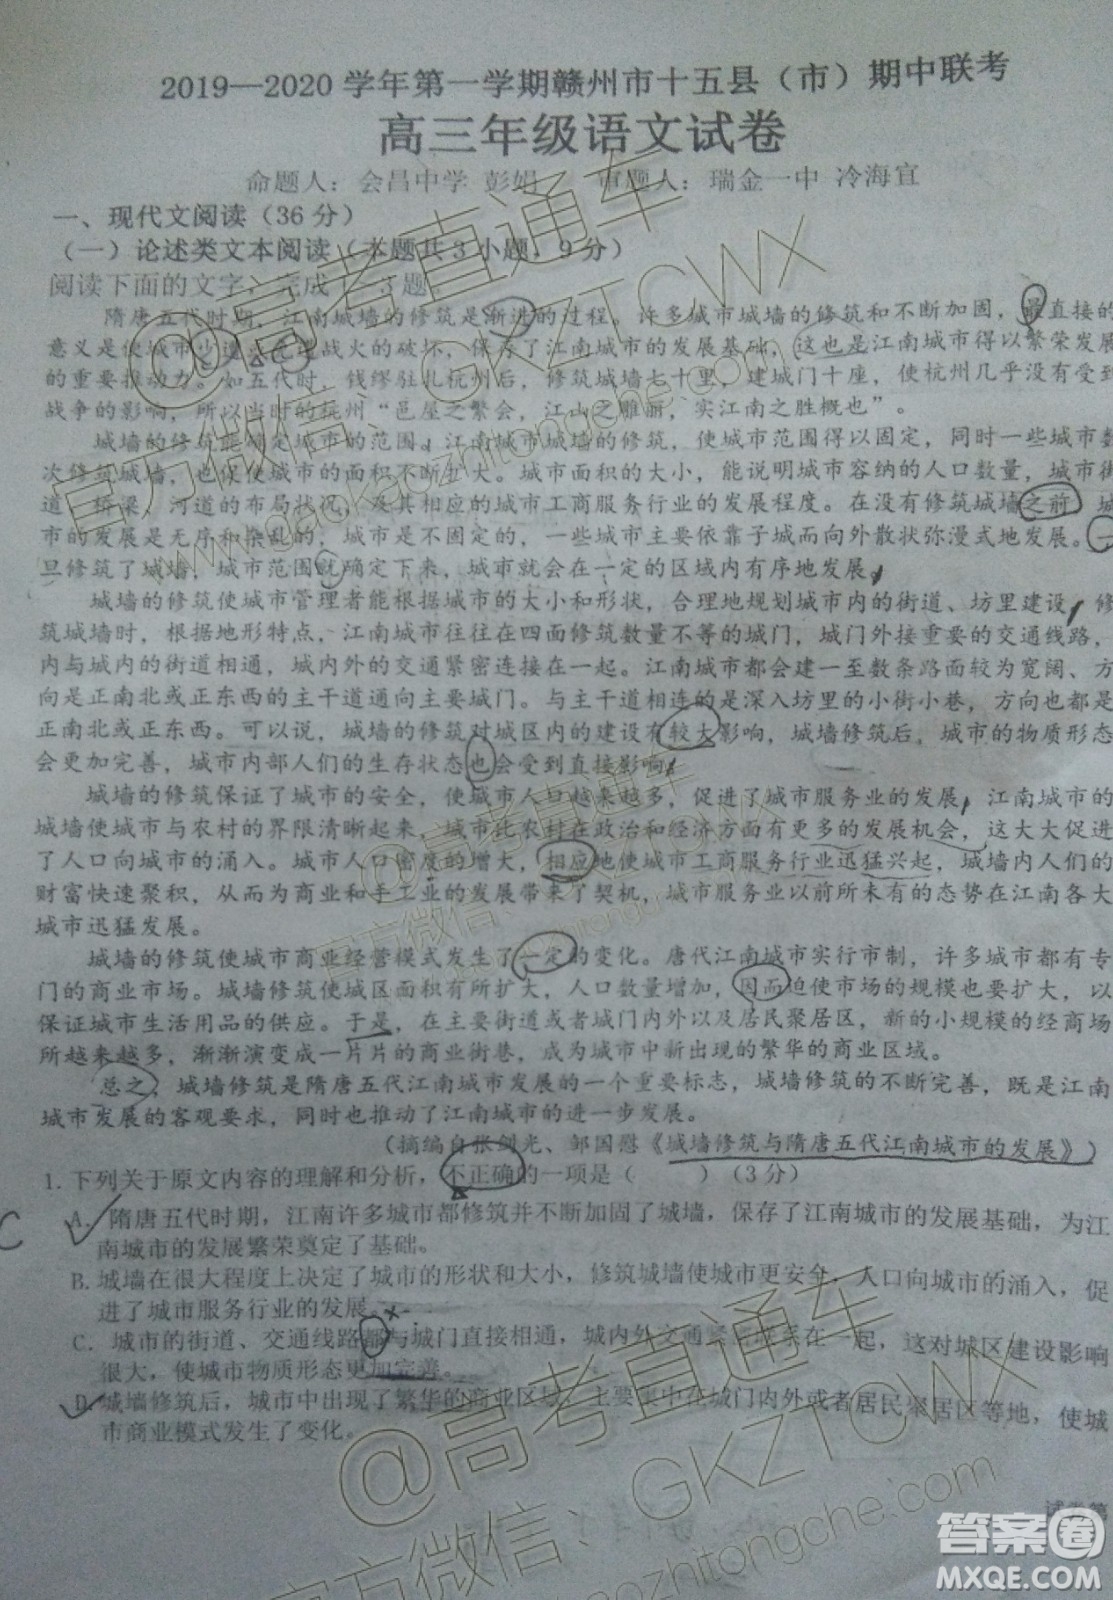 2019—2020 学年第一学期赣州市十五县（市）期中联考
高三年级语文试卷
命题人：会昌中学 彭娟 审题人：瑞金一中 冷海宜
一、现代文阅读（36 分）
（一）论述类文本阅读（本题共 3 小题，9 分）
阅读下面的文字，完成 1—3 题。
隋唐五代时期，江南城墙的修筑是渐进的过程。许多城市城墙的修筑和不断加固，最直接的
意义是使城市少遭战火的破坏，保存了江南城市的发展基础，这也是江南城市得以繁荣发展
的重要推动力。如五代时，钱缪驻扎杭州后，修筑城墙七十里，建城门十座，使杭州几乎没有受到
战争的影响，所以当时的杭州“邑屋之繁会，江山之雕丽，实江南之胜概也”。
城墙的修筑能确定城市的范围。江南城市城墙的修筑，使城市范围得以固定，同时一些城市数
次修筑城墙，也促使城市的面积不断扩大。城市面积的大小，能说明城市容纳的人口数量，城市街
道、桥梁、河道的布局状况，及其相应的城市工商服务行业的发展程度。在没有修筑城墙之前，城
市的发展是无序和杂乱的，城市是不固定的，一些城市主要依靠子城而向外散状弥漫式地发展。一
旦修筑了城墙，城市范围就确定下来，城市就会在一定的区域内有序地发展。
城墙的修筑使城市管理者能根据城市的大小和形状，合理地规划城市内的街道、坊里建设。修
筑城墙时，根据地形特点，江南城市往往在四面修筑数量不等的城门，城门外接重要的交通线路，
内与城内的街道相通，城内外的交通紧密连接在一起。江南城市都会建一至数条路面较为宽阔、
向是正南北或正东西的主干道通向主要城门。与主干道相连的是深入坊里的小街小巷，方向也都是
正南北或正东西。可以说，城墙的修筑对城区内的建设有较大影响，城墙修筑后，城市的物质形态
会更加完善，城市内部人们的生存状态也会受到直接影响。
城墙的修筑保证了城市的安全，使城市人口越来越多，促进了城市服务业的发展。江南城市的
城墙使城市与农村的界限清晰起来，城市比农村在政治和经济方面有更多的发展机会，这大大促进
了人口向城市的涌入。城市人口密度的增大，相应地使城市工商服务行业迅猛兴起，城墙内人们的
财富快速聚积，从而为商业和手工业的发展带来了契机，城市服务业以前所未有的态势在江南各大
城市迅猛发展。
城墙的修筑使城市商业经营模式发生了一定的变化。唐代江南城市实行市制，许多城市都有专
门的商业市场。城墙修筑使城区面积有所扩大，人口数量增加，因而迫使市场的规模也要扩大，以
保证城市生活用品的供应。于是，在主要街道或者城门内外以及居民聚居区，新的小规模的经商场
所越来越多，渐渐演变成一片片的商业街巷，成为城市中新出现的繁华的商业区域。
总之，城墙修筑是隋唐五代江南城市发展的一个重要标志，城墙修筑的不断完善，既是江南
城市发展的客观要求，同时也推动了江南城市的进一步发展。
（摘编自张剑光、邹国慰《城墙修筑与隋唐五代江南城市的发展》）
1. 下列关于原文内容的理解和分析，不正确的一项是（ ）（3 分）
C
A. 隋唐五代时期，江南许多城市都修筑并不断加固了城墙，保存了江南城市的发展基础，为江
南城市的发展繁荣奠定了基础。
B. 城墙在很大程度上决定了城市的形状和大小，修筑城墙使城市更安全，人口向城市的涌入，促
进了城市服务行业的发展。
C. 城市的街道、交通线路都与城门直接相通，城内外交通紧密联系在一起，这对城区建设影响
很大，使城市物质形态更加完善。
D. 城墙修筑后，城市中出现了繁华的商业区域，主要集中在城门内外或者居民聚居区等地，使城
市商业模式发生了变化。
试卷第
@高考直通车
官方微信：GKZTCWX
www.gaokzhitongche.com
@高考直通车
官方微信
@高考直通车
官方微信：GKZTCWX
gaozhitongche.com
答案圈
MXQE.COM